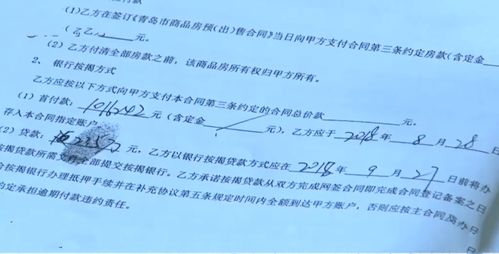 (1)乙方在签订《青岛市商品房预(出)售合同》当日向甲方支付合同第三条约定房款(含定金
元。
(2)乙方付清全部房款之前，该商品房所有权归甲方所有。
2、银行按揭方式
乙方应按以下方式向甲方支付本合同第三条约定的合同总价款
(1)首付款: 1016242 元(含定金 元)，乙方应于 2018 年 8 月 28 日
存入本合同指定账户
(2)贷款: 元，乙方以银行按揭贷款方式应在 2018 年 9 月 27 日前将办
按揭贷款所需 全部提交按揭银行。乙方承诺按揭贷款从双方完成网签合同即完成合同登记备案之日
按揭银行办理抵押手续并在补充协议第五条规定时间内全额到达甲方账户，否则应按主合同 办日
约定承担逾期付款违约责任。